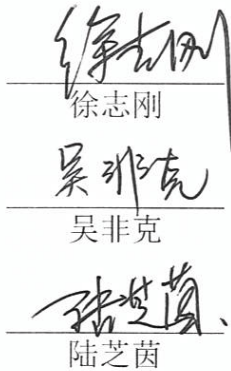 徐志刚
徐志刚
吴非克
吴非克
陆芝茵
陆芝茵